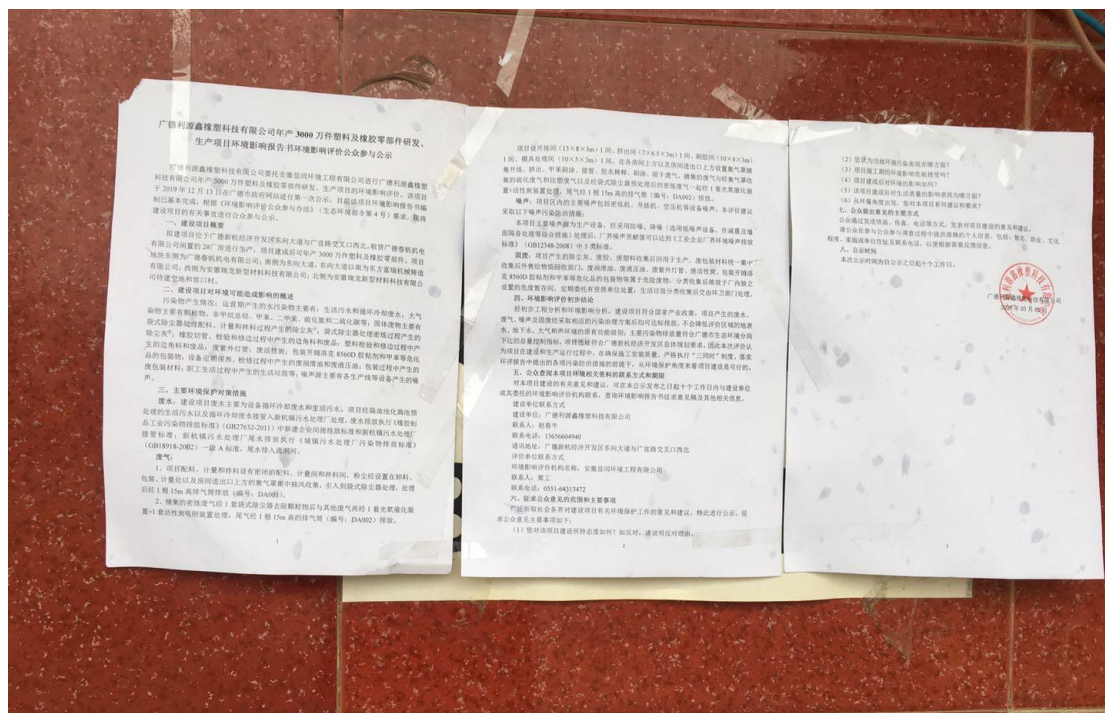 广德利源鑫橡塑科技有限公司年产 3000 万件塑料及橡胶零部件研发、
生产项目环境影响报告书环境影响评价公众参与公示
广德利源鑫橡塑科技有限公司委托安徽显闰环境工程有限公司进行广德利源鑫橡塑
科技有限公司年产 3000 万件塑料及橡胶零部件研发、生产项目的环境影响评价。该项目
于 2019 年 12 月 13 日在广德市政府网站进行第一次公示，目前该项目环境影响报告书编
制已基本完成，根据《环境影响评价公众参与办法》（生态环境部令第 4 号）要求，我将
建设项目的有关事宜进行公众参与公示。
一、建设项目概要
拟建项目位于广德新杭经济开发区东向大道与广宜路交叉口西北,租赁广德春帆机电
有限公司闲置的 2#厂房进行生产，项目建成后可年产 3000 万件塑料及橡胶零部件。项目
地块东侧为广德春帆机电有限公司；南侧为东向大道，东向大道以南为东方富瑞机械铸造
有限公司；西侧为安徽瑞龙新型材料科技有限公司；北侧为安徽瑞龙新型材料科技有限公
司待建空地和窑口村。
二、建设项目对环境可能造成影响的概述
污染物产生情况：运营期产生的水污染物主要有：生活污水和循环冷却废水；大气
污染物主要有颗粒物、非甲烷总烃、甲苯、二甲苯、硫化氢和二硫化碳等；固体废物主要有
袋式除尘器处理配料、计量和拌料过程产生的除尘灰；袋式除尘器处理密炼过程产生的
除尘灰；橡胶切管、检验和修边过程中产生的边角料和废品；塑料检验和修边过程中产
生的边角料和废品；废紫外灯管；废活性炭；包装开姆洛克 8560D 胶粘剂和甲苯等危化
品的包装物；设备定期保养、检修过程中产生的废润滑油和废液压油；包装过程中产生的
废包装材料；职工生活过程中产生的生活垃圾等；噪声源主要有各生产线等设备产生的噪
声。
三、主要环境保护对策措施
废水：建设项目废水主要为设备循环冷却废水和生活污水，项目经隔油池化粪池预
处理的生活污水以及循环冷却废水接管入新杭镇污水处理厂处理，废水排放执行《橡胶制
品工业污染物排放标准》（GB27632-2011）中新建企业间接排放标准和新杭镇污水处理厂
接管标准；新杭镇污水处理厂尾水排放执行《城镇污水处理厂污染物排放标准》
（GB18918-2002）一级 A 标准，尾水排入流洞河。
废气：
1、项目配料、计量和拌料设有密闭的配料、计量间和拌料间，粉尘经设置在卸料、
包装、计量处以及房间进出口上方的集气罩集中抽风收集，引入到袋式除尘器处理，处理
后经 1 根 15m 高排气筒排放（编号：DA001）。
2、捕集的密炼废气经 1 套袋式除尘器去除颗粒物后与其他废气再经 1 套光氧催化装
置+1 套活性炭吸附装置处理，尾气经 1 根 15m 高的排气筒（编号：DA002）排放。
1
项目设开炼间（13×8×3m）1 间、挤出间（7×6.5×3m）1 间、刷胶间（10×4×3m）
1 间、模具处理间（10×5×3m）1 间，在各房间上方以及房间进出口上方设置集气罩捕
集开炼、挤出、甲苯刷涂、接管、胶水稀释、刷涂、晾干废气。捕集的废气与经集气罩收
集的硫化废气和注塑废气以及经袋式除尘器预处理后的密炼废气一起经 1 套光氧催化装
置+活性炭装置处理，尾气经 1 根 15m 高的排气筒（编号：DA002）排放。
噪声：项目区内的主要噪声包括密炼机、开炼机、空压机等设备噪声。本评价建议
采取以下噪声污染防治措施：
本项目主要噪声源为生产设备，经采用防噪、降噪（选用低噪声设备、作减震及墙
面隔音处理等综合措施）处理后，厂界噪声贡献值可以达到《工业企业厂界环境噪声排放
标准》（GB12348-2008）中 3 类标准。
固废：项目产生的除尘灰、废胶、废塑料收集后回用于生产，废包装材料统一集中
收集后外售给物资回收部门，废润滑油、废液压油、废紫外灯管、废活性炭、包装开姆洛
克 8560D 胶粘剂和甲苯等危化品的包装物等属于危险废物，分类收集后堆放于厂内独立
设置的危废暂存间，定期委托有资质单位处置；生活垃圾分类收集后交由环卫部门处理。
四、环境影响评价初步结论
经初步工程分析和环境影响分析，建设项目符合国家产业政策，项目产生的废水、
废气、噪声及固废经采取相应的污染治理方案后均可达标排放，不会降低评价区域的地表
水、地下水、大气和声环境的原有功能级别；主要污染物排放量符合广德市生态环境分局
下达的总量控制指标，项目选址符合广德新杭经济开发区总体规划要求。因此本次评价认
为项目在建设和生产运行过程中，在确保施工安装质量、严格执行“三同时”制度、落实
环评报告中提出的各项污染防治措施的前提下，从环境保护角度来看项目建设是可行的。
五、公众查阅本项目环境相关资料的联系方式和期限
对本项目建设的有关意见和建议，可在本公示发布之日起十个工作日内与建设单位
或其委托的环境影响评价机构联系，查询环境影响报告书征求意见稿及其他相关信息。
建设单位联系方式
建设单位：广德利源鑫橡塑科技有限公司
联系人：赵春牛
联系电话：13656604940
通讯地址：广德新杭经济开发区东向大道与广宜路交叉口西北
评价单位联系方式
环境影响评价机构名称：安徽显闰环境工程有限公司
联系人：窦工
联系电话：0551-64313472
六、征求公众意见的范围和主要事项
广泛听取社会各界对建设项目有关环境保护工作的意见和建议，特此进行公示，征
求公众意见主要事项如下：
（1）您对该项目建设所持态度如何？如反对，请说明反对理由。
2
（2）您认为当地环境污染表现在哪方面？
（3）项目施工期的环境影响您能接受吗？
（4）项目建成后对环境的影响如何？
（5）该项目建成后对生活质量的影响表现为哪方面？
（6）从环保角度出发，您对本项目有何建议和要求？
七、公众提出意见的主要方式
公众通过发送信函、传真、电话等方式，发表对项目建设的意见和建议。
请公众在参与公众参与调查过程中提供准确的个人信息，包括：姓名、职业、文化
程度、家庭或单位住址及联系电话，以便根据需要反馈信息。
八、公示时间
本次公示时间为自公示之日起十个工作日。
广德利源鑫橡塑科技有限公司
3